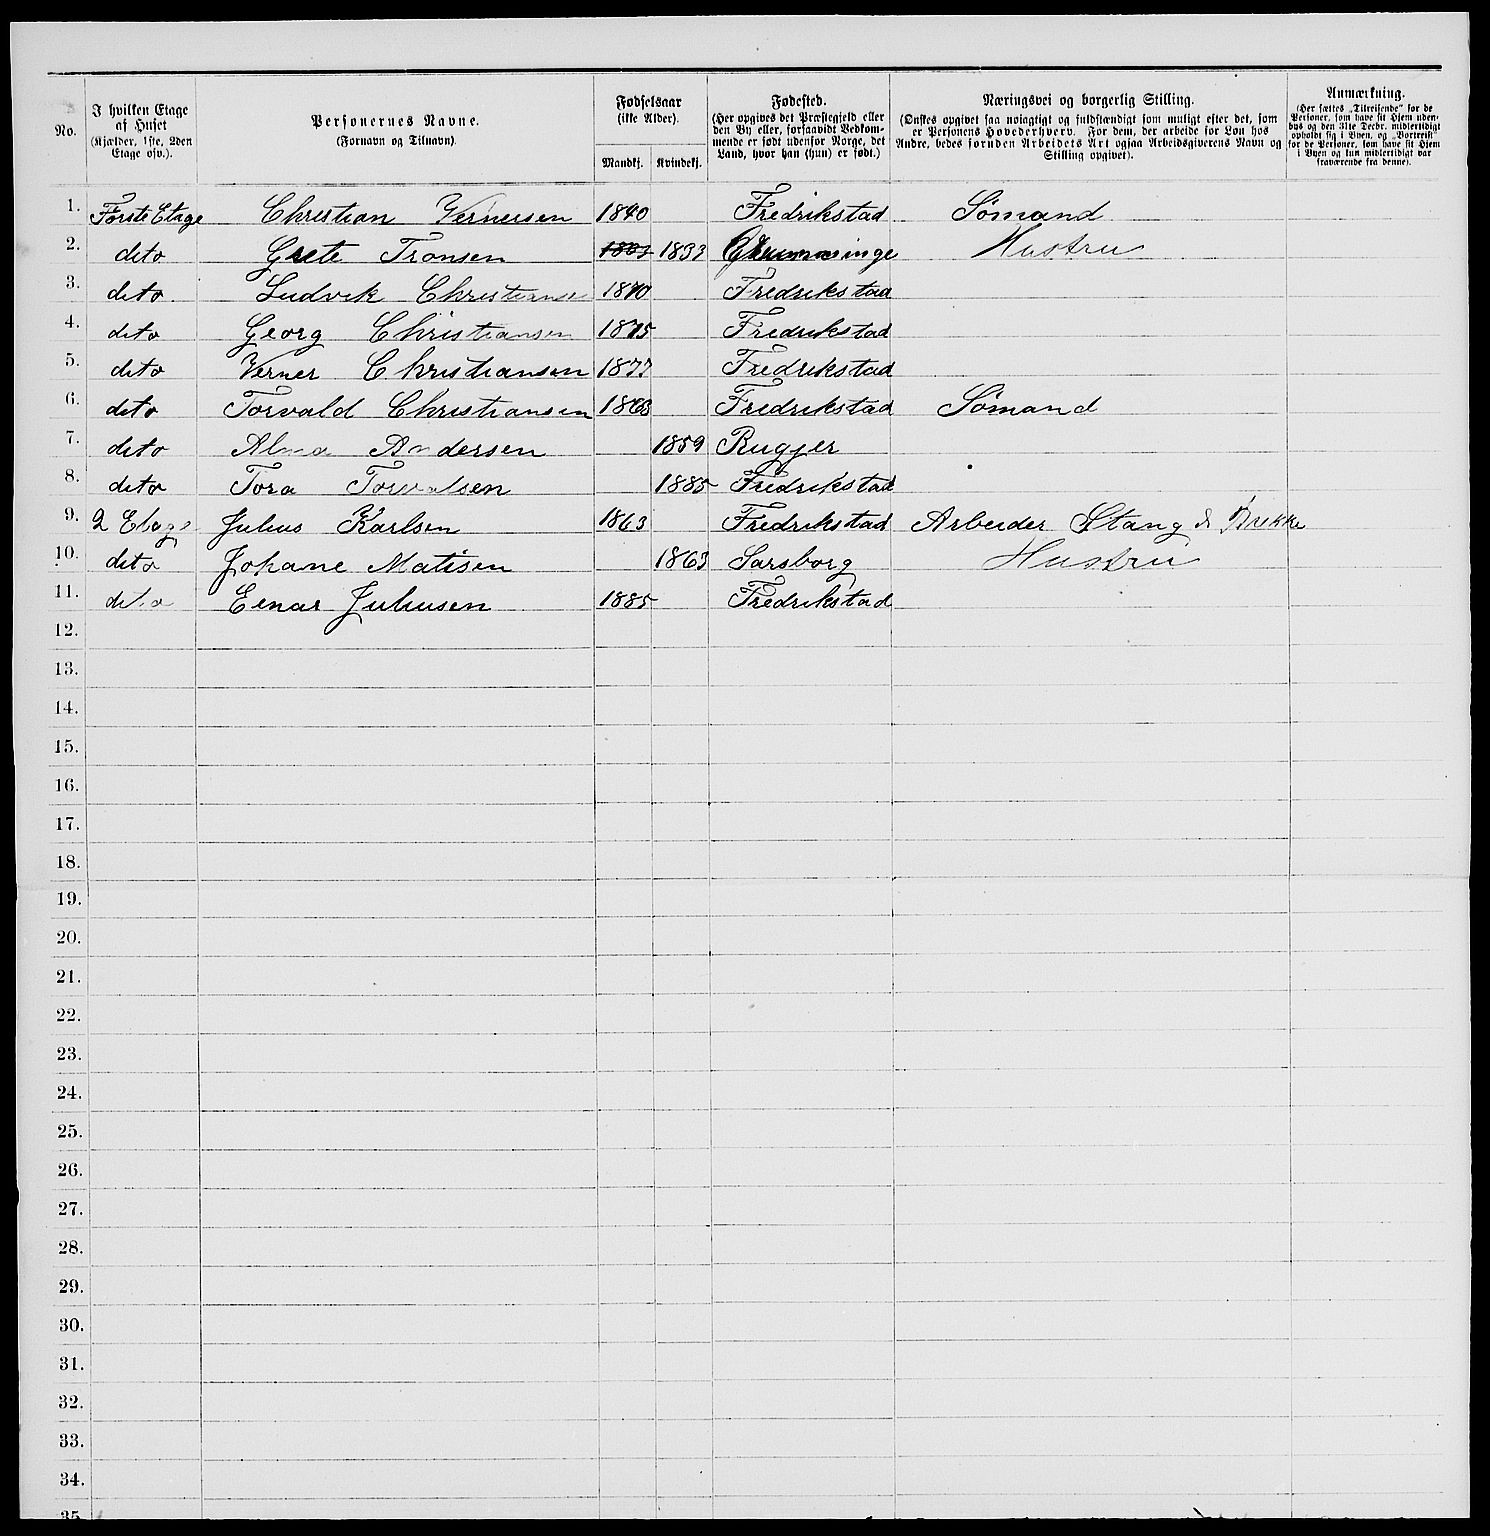 No.
I hvilken Etage
af Huset
(Kjælder, 1ste, 2den
Etage osv.).
Personernes Navne.
(Fornavn og Tilnavn).
Fødselsaar
(ikke Alder).
Mandkj. Kvindekj.
Fødested.
(Her opgives det Præstegjeld eller
den By eller, forsaavidt Vedkom-
mende er født udenfor Norge, det
Land, hvor han (hun) er født.)
Næringsvei og borgerlig Stilling.
(Ønskes opgivet saa nøiagtigt og fuldstændigt som muligt efter det, som
er Personens Hovederhverv. For dem, der arbeide for Løn hos
Andre, bedes foruden Arbeidets Art ogsaa Arbeidsgiverens Navn og
Stilling opgivet).
Anmærkning.
(Her sættes „Tilreisende" for de
Personer, som have sit Hjem uden-
bys og den 31te Decbr. midlertidigt
opholdt sig i Byen, og „Bortreist"
for de Personer, som have sit Hjem
i Byen og kun midlertidigt var
fraværende fra denne).
1. Første Etage Christian Vernersen 1840 Fredrikstad Sømand
2. deto Grete Tronsen 1833 Hustru
3. deto Ludvik Christianse 1870 Fredrikstad
4. deto Georg Christiansen 1875 Fredrikstad
5. deto Verner Christiansen 1877 Fredrikstad
6. deto Torvald Christiansen 1863 Fredrikstad Sømand
7. deto Alma Andersen 1859 Rugjer
8. deto Tora Torvalsen 1885 Fredrikstad
9. 2 Etage Julius Karlsen 1863 Fredrikstad Arbeider Stang & Brekke
10. deto Johane Matisen 1863 Sarsborg Hustru
11. deto Eenar Juliusen 1885 Fredrikstad
12.
13.
14.
15.
16.
17.
18.
19.
20.
21.
22.
23.
24.
25.
26.
27.
28.
29.
30.
31.
32.
33.
34.
35.